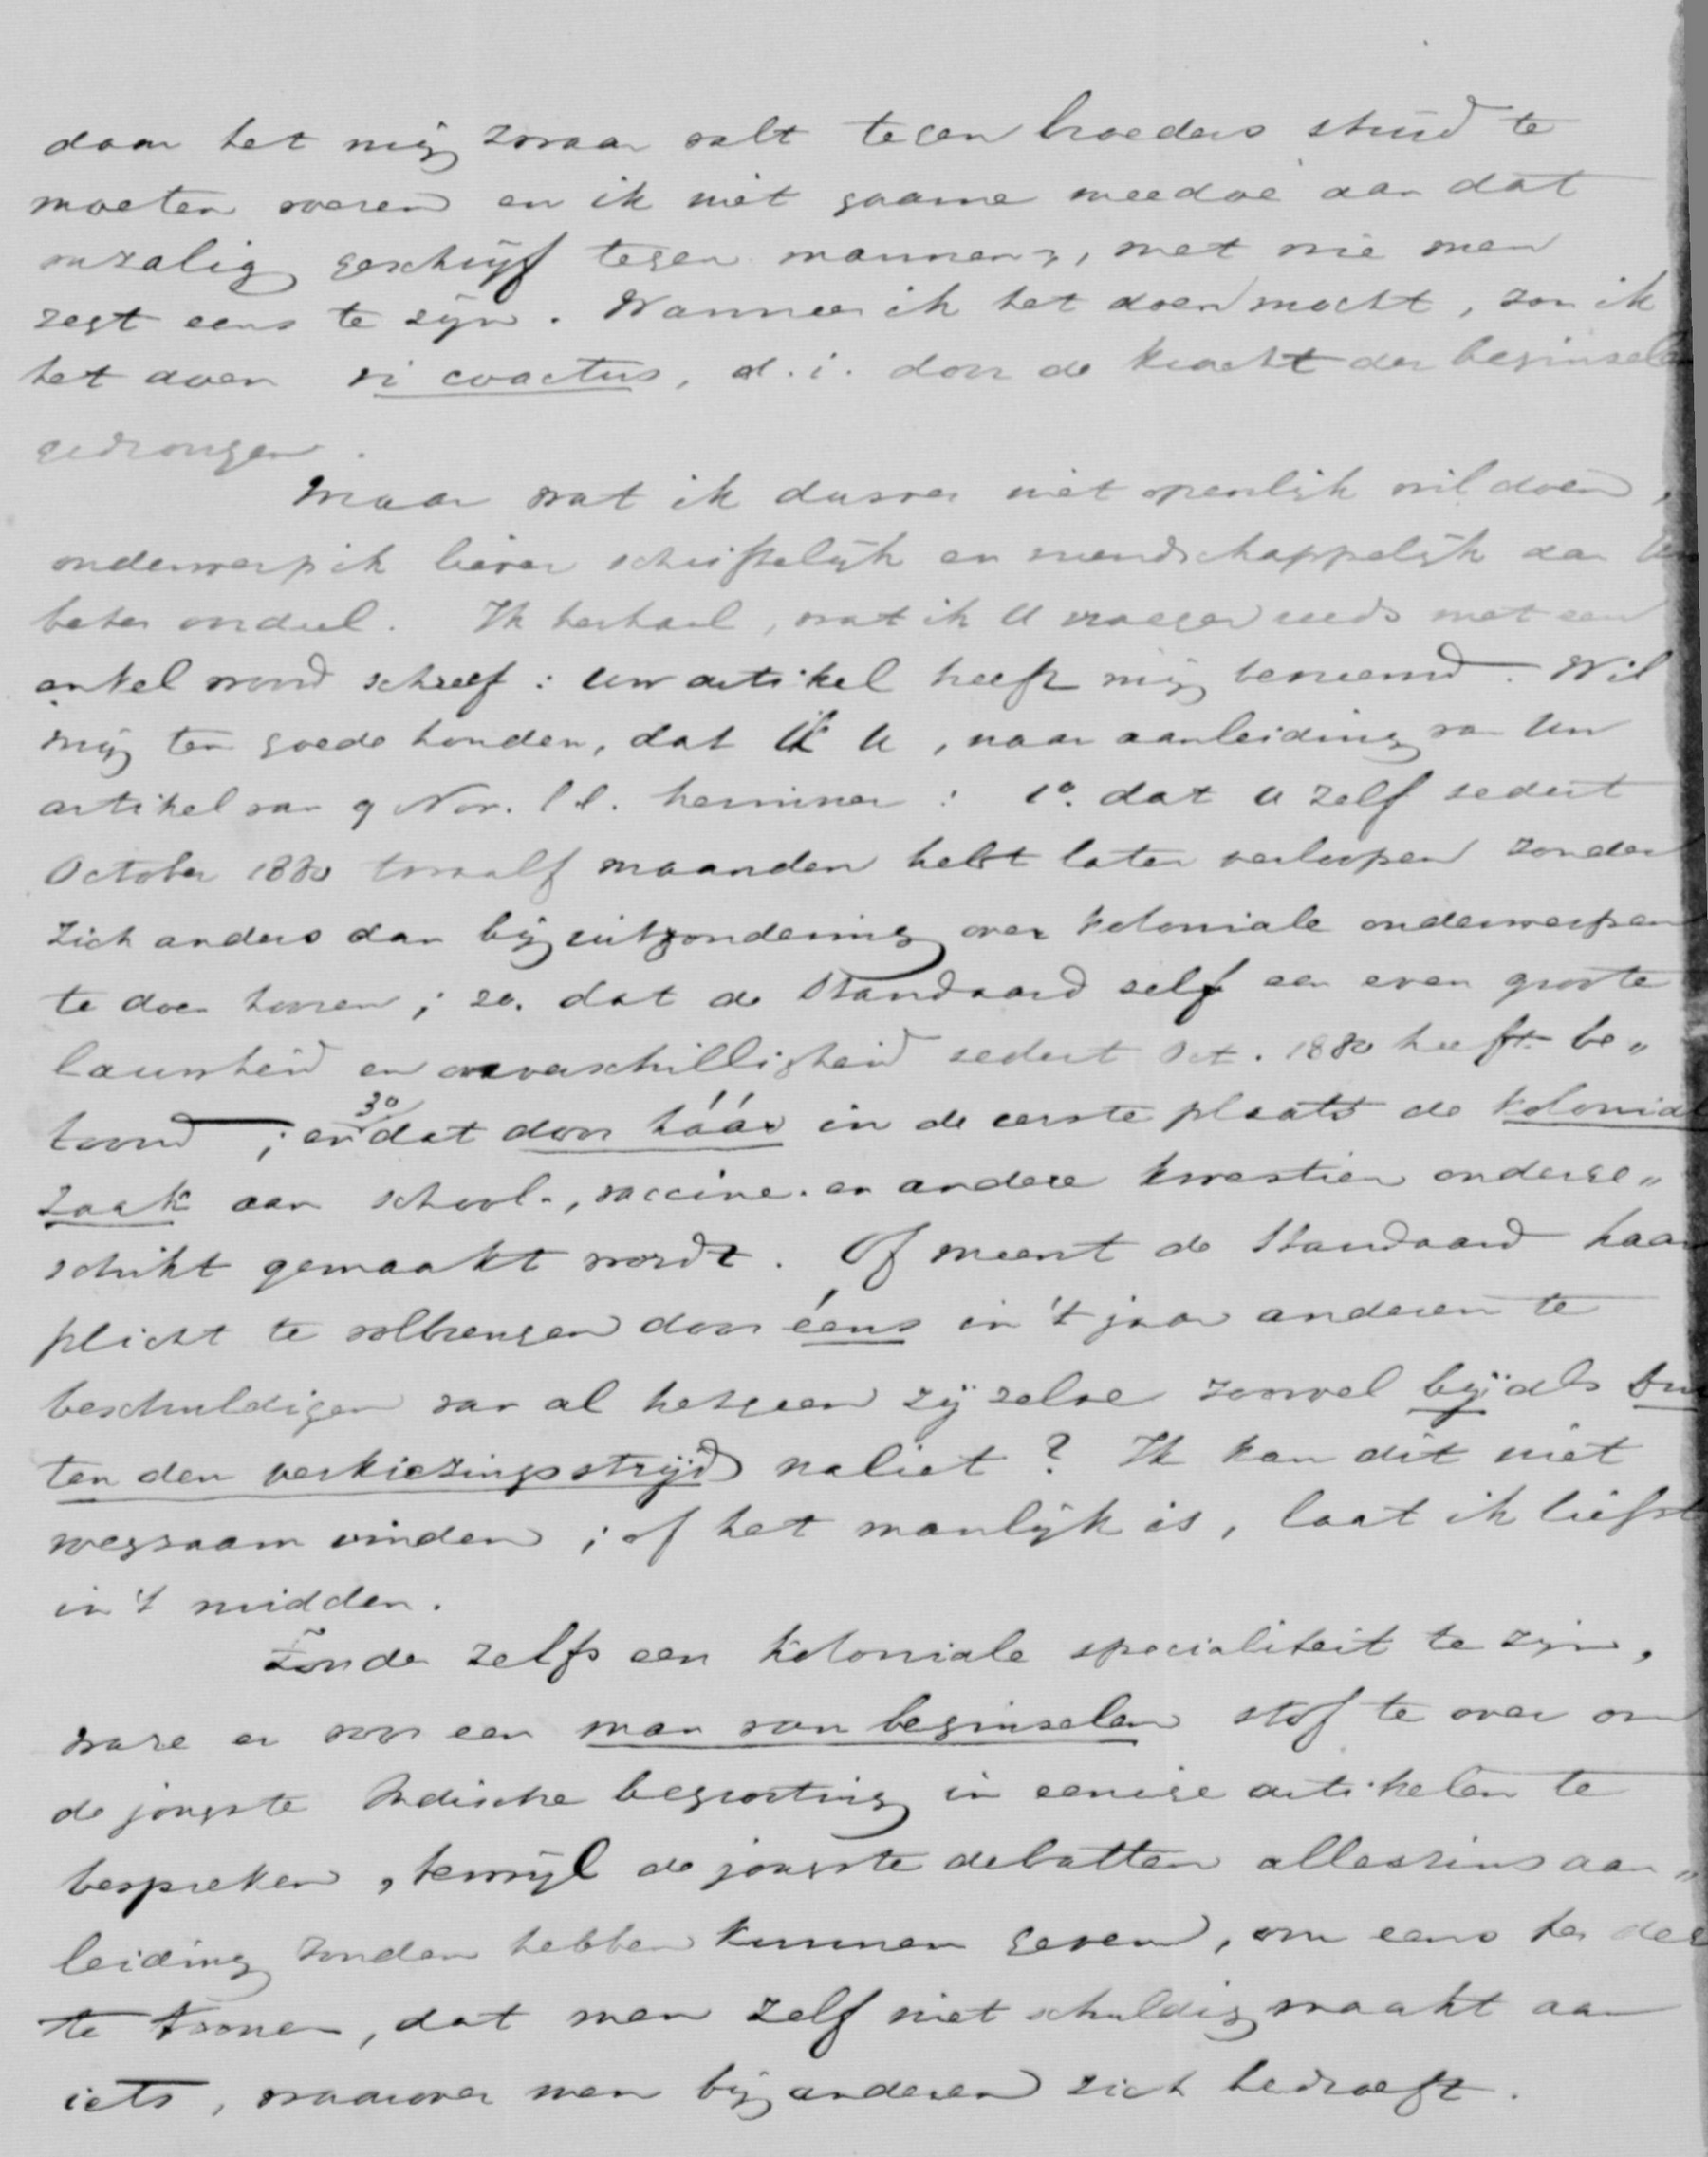 daar het mij zwaar valt tegen broeders strijd te
moeten voeren en ik niet gaarne meedoe aan dat
onzalig geschrijf tegen mannen, met wie men
zegt eens te zijn. Wanneer ik het doen mocht, zou ik
het doen vi coactus, d.i. door de kracht der beginselen
gedrongen.
Maar wat ik dusver niet openlijk wil doen,
onderwerp ik liever schriftelijk en vriendschappelijk aan Uw
beter oordeel. Ik herhaal, wat ik U vroeger reeds met een
enkel woord schreef: Uw artikel heeft mij bevreemd. Wil
mij ten goede houden, dat ik U, naar aanleiding van Uw
artikel van 9 Nov. l.l. herinner: 1o. dat U zelf sedert
October 1880 twaalf maanden hebt laten verloopen zonder
zich anders dan bij uitzondering over koloniale onderwerpen
te doen hooren; 2o. dat de Standaard zelf een even groote
lauwheid en onverschilligheid sedert Oct. 1880 heeft be„
toond; en 3o dat door háár in de eerste plaats de koloniale
zaak aan school-, vaccine- en andere kwestien onderge„
schikt gemaakt wordt. Of meent de Standaard haar
plicht te volbrengen door ééns in 't jaar anderen te
beschuldigen van al hetgeen zij zelve zoowel bij als bui
ten den verkiezingsstrijd naliet? Ik kan dit niet
wegzaam vinden; of het manlijk is, laat ik liefst
in 't midden.
Zonder zelfs een koloniale specialiteit te zijn,
ware er voor een man van beginselen stof te over om
de jongste Indische begrooting in eenige artikelen te
bespreken, terwijl de jongste debatten alleszins aan„
leiding zouden hebben kunnen geven, om eens ter dege
te toonen, dat men zelf niet schuldig maakt aan
iets, waarover men bij anderen zich bedroeft.